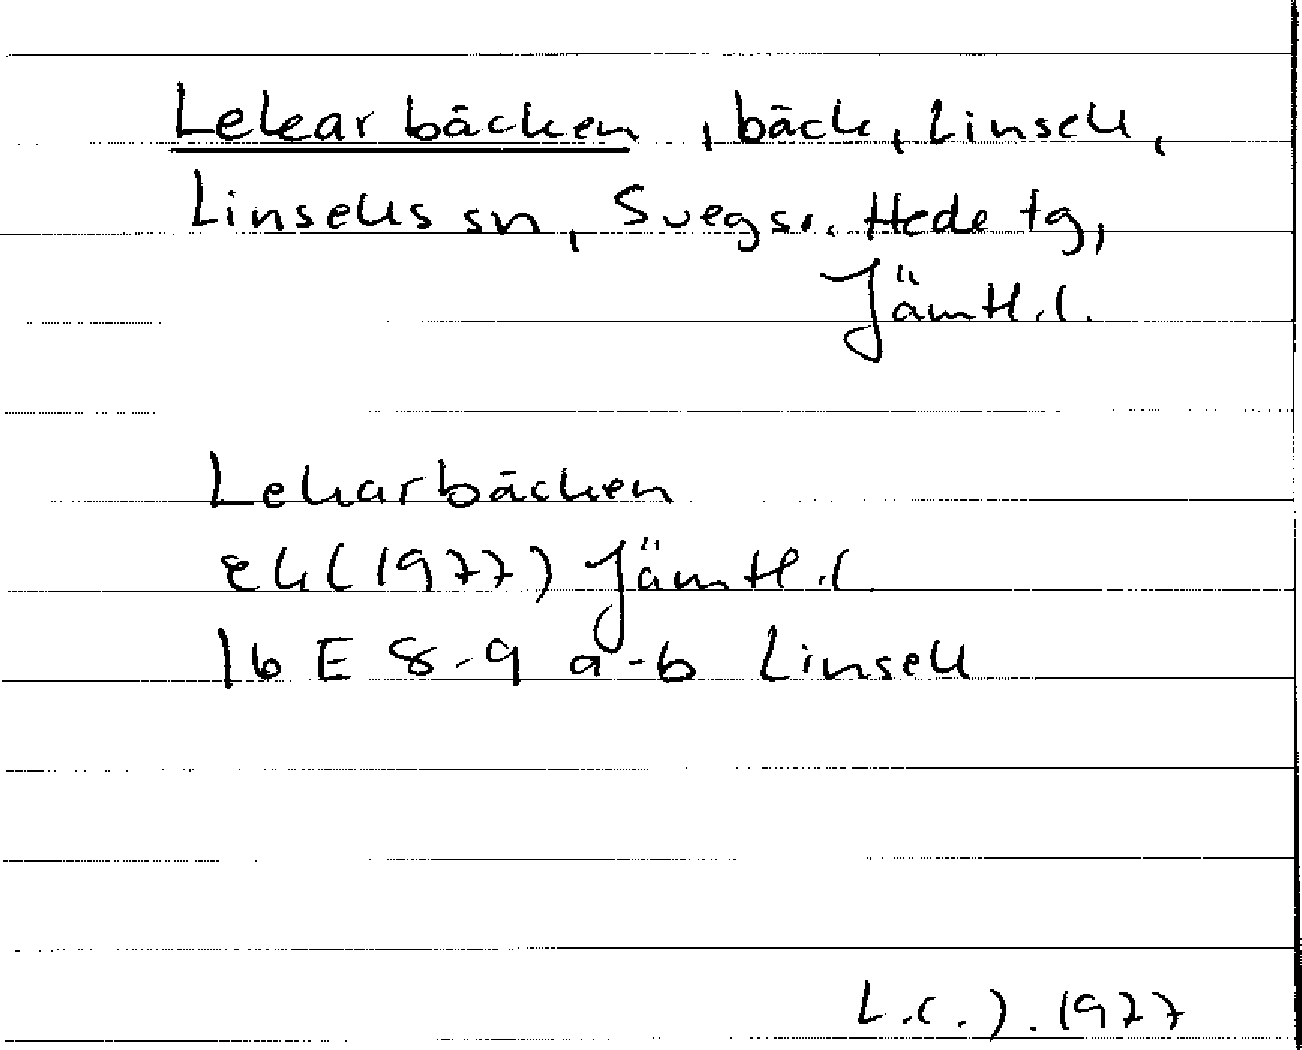 Lekarbäcken, bäck, Linsell,
Linsells sn, Svegs o. Hede tg,
Jämtl.l.
Lekarbäcken
ek (1977) Jämtl.l.
16 E 8-9 a-b Linsell
L.C.J. 1977